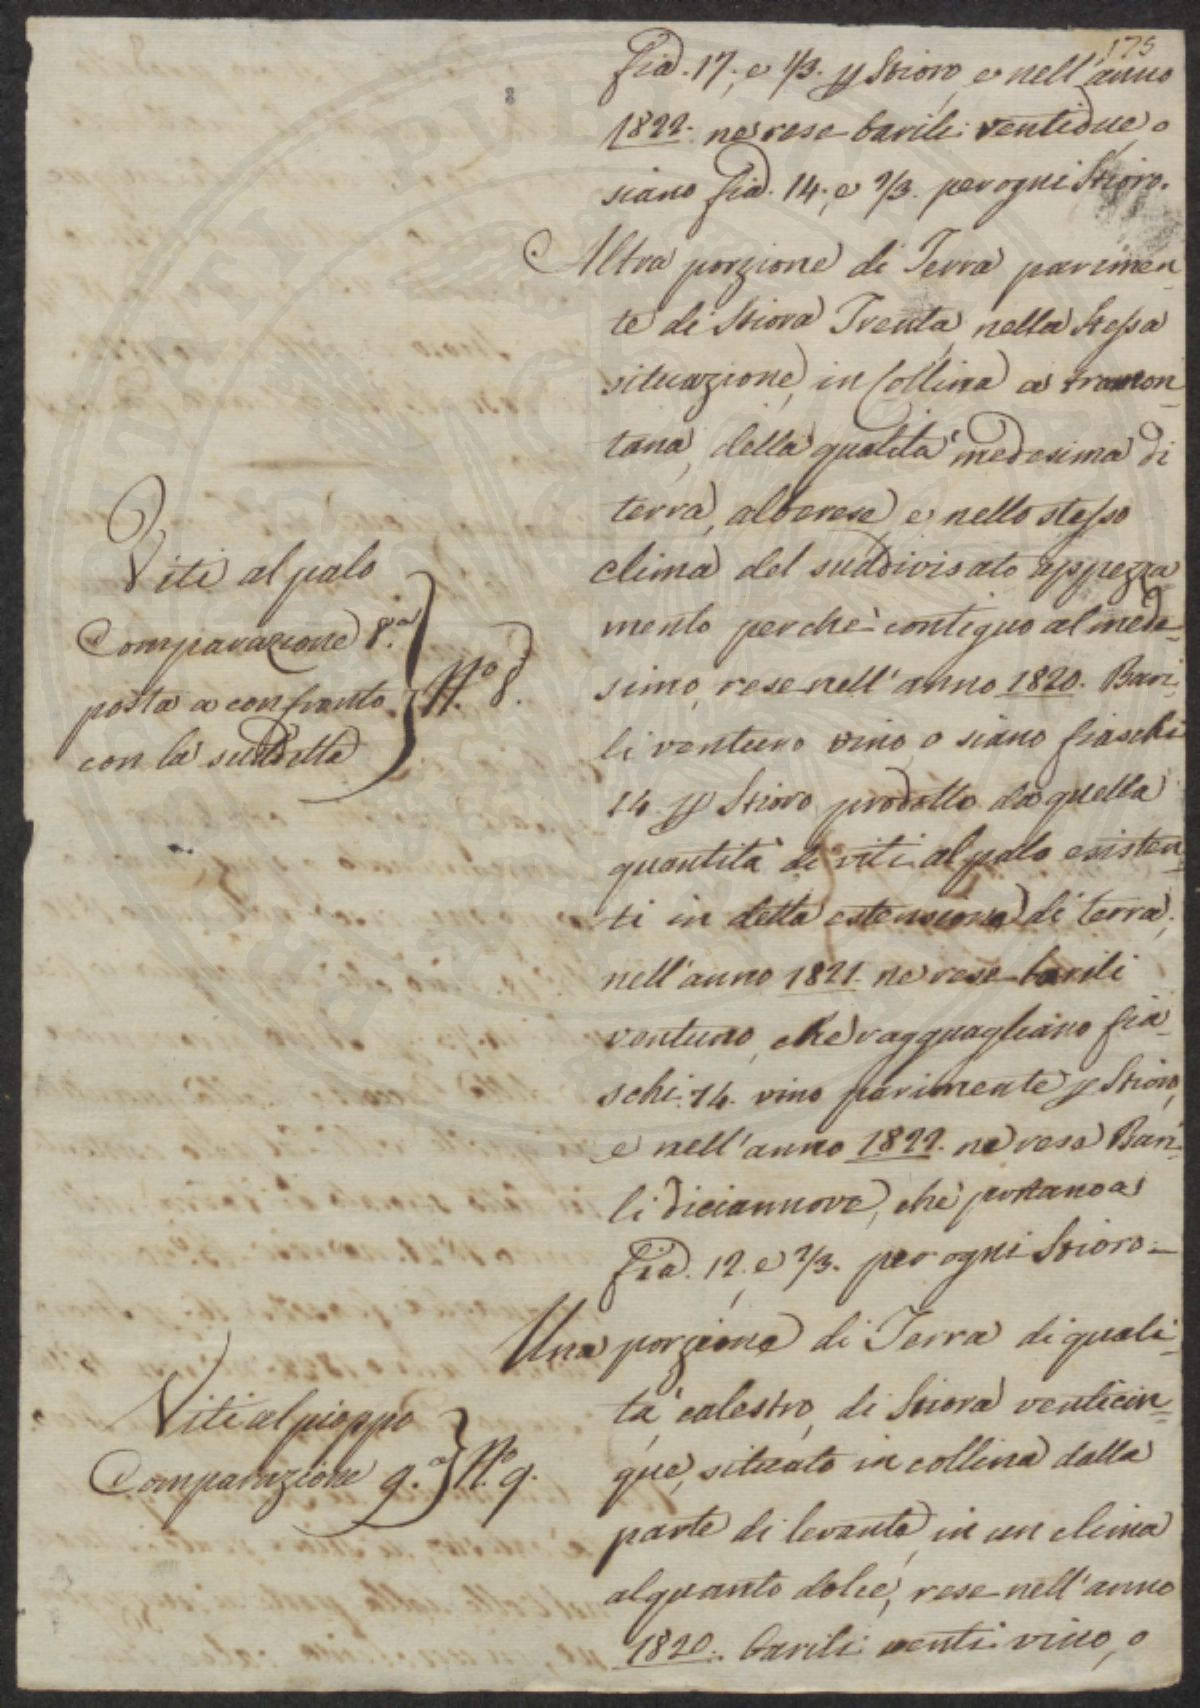 175
fia. 17, e 1/3. p Stioro, e nell'anno
1822. ne rese barili ventidue, o
siano fia. 14, e 2/3. per ogni Stioro.
Altra porzione di Terra parimen-
te di Stiora Trenta, nella stessa
situazione, in Collina a tramon-
tana, della qualità medesima di
terra, alberese, e nello stesso
clima del suddivisato appezza
mento perchè contiguo al mede-
simo, rese nell'anno 1820. Bari-
li ventuno vino, o siano fiaschi
14. p Stioro, prodotto da quella
quantità di viti al palo esisten-
ti in detta estensione di terra,
nell'anno 1821. ne rese barili
ventuno, che ragguagliano fia-
schi 14. vino parimente p Stioro,
e nell'anno 1822. ne rese Bari-
li diciannove, che portano a
fia. 12. e 2/3. per ogni Stioro.
Viti al palo
Comparazione 8.a
posta a confronto
con la suddetta
N.o 8.
Una porzione di Terra di quali-
tà, calestro, di Stiora venticin-
que, situato in collina dalla
parte di levante, in un clima
alquanto dolce, rese nell'anno
1820. barili venti vino, o
Viti al pioppo
Comparazione 9.a
N.o 9.